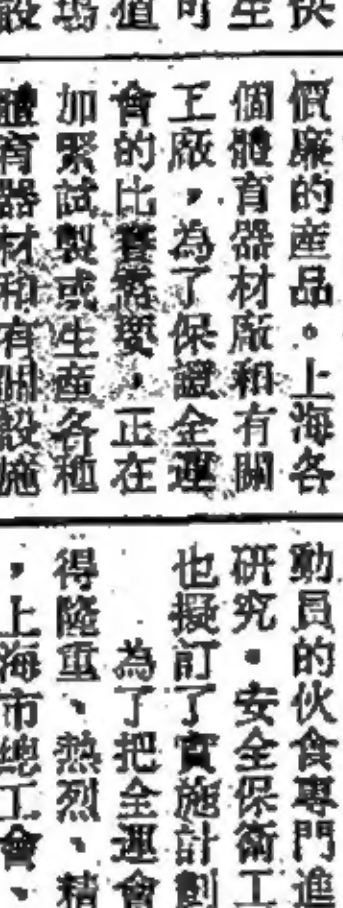 快
生
可
值
塢
設
價廉的產品。上海各
個體育器材廠和有關
工廠，為了保證全運
會的比賽需要，正在
加緊試製或生產各種
體育器材和有關設施
動員的伙食專門進
研究。安全保衛工
也擬訂了實施計劃
為了把全運會
得隆重、熱烈、精
，上海市總工會、